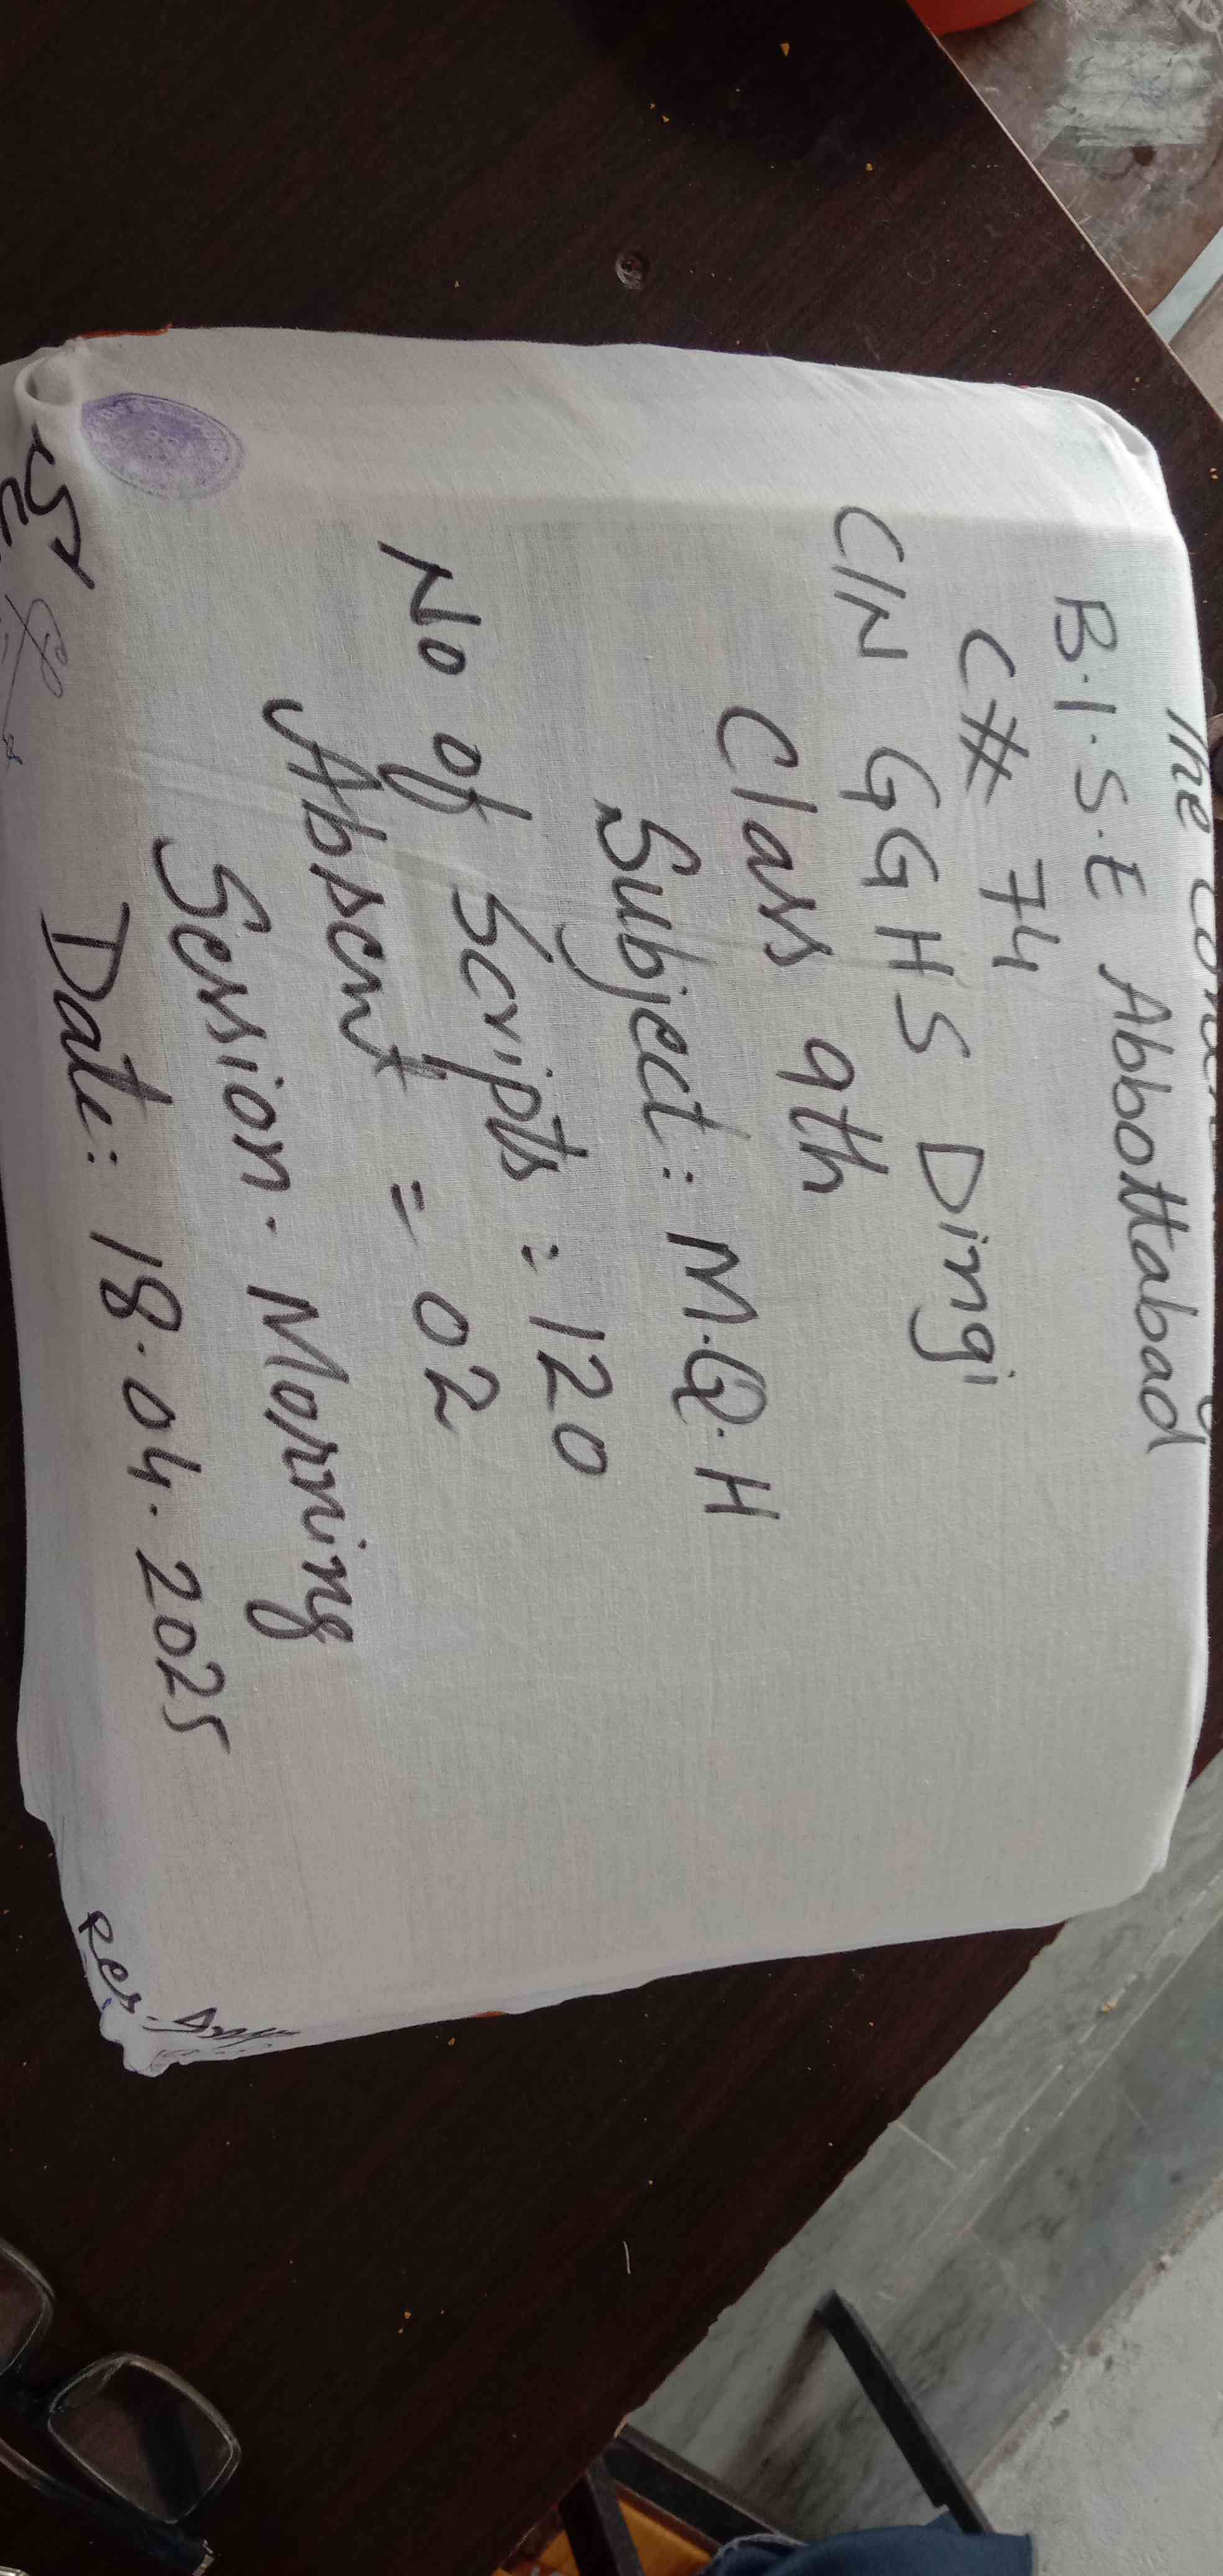 The
B.I.S.E Abbottabad
C# 74
C/N GGHS Dingi
Class 9th
Subject: M.Q.H
No of Scripts : 120
Absent = 02
Session. Morning
Date: 18.04.2025